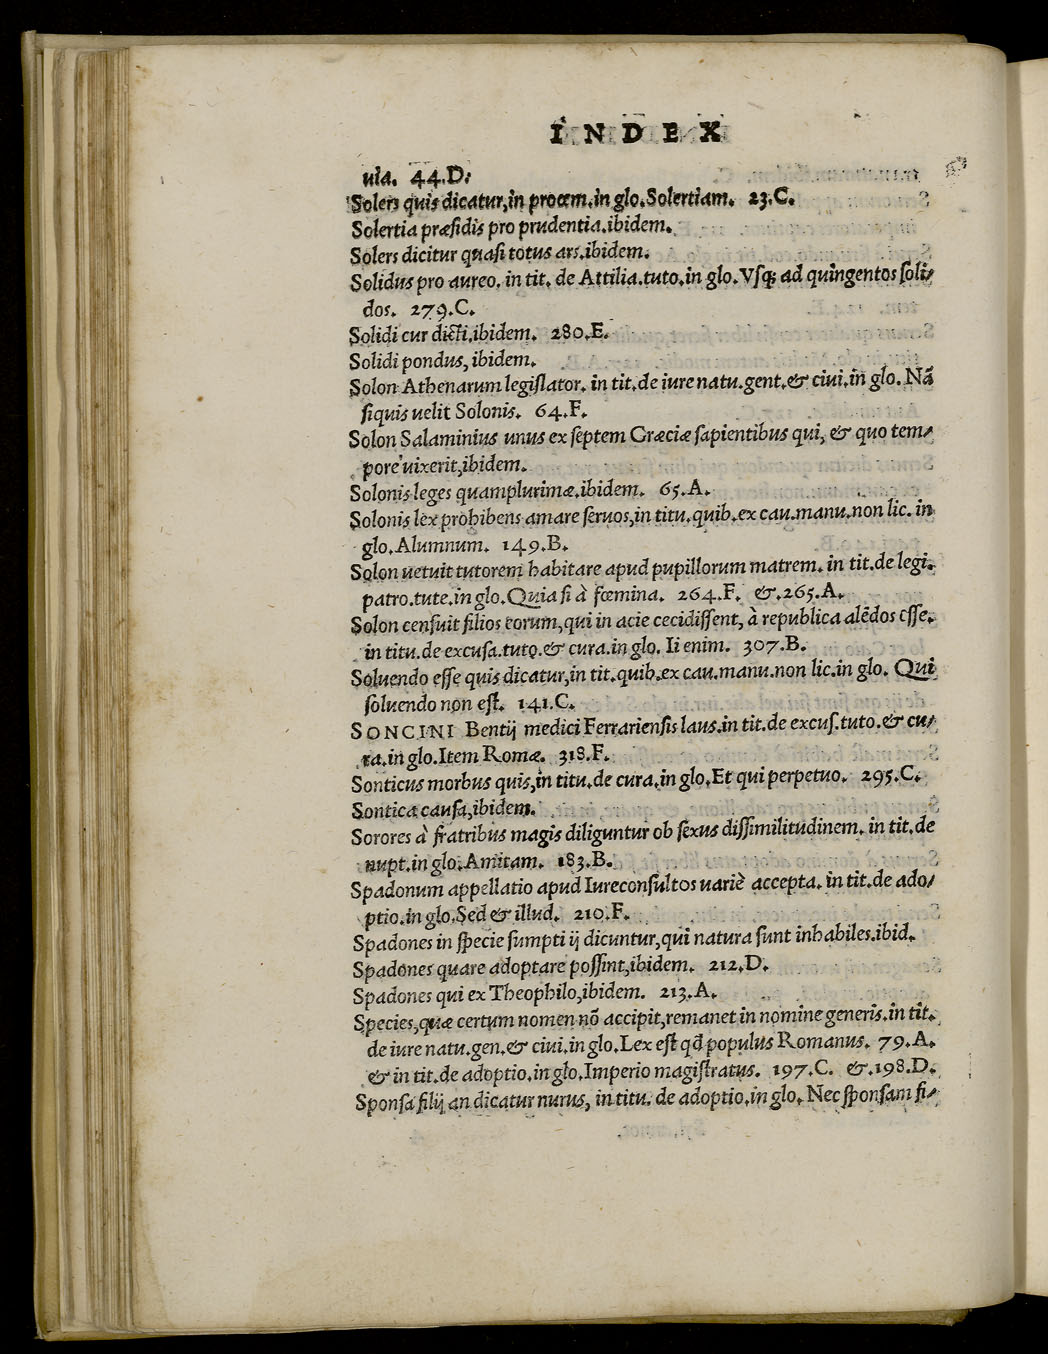 INDEX
ula. 44.D.
Solers quis dicatur, in proœm. in glo. Solertiam. 23.C.
Solertia præsidis pro prudentia. ibidem.
Solers dicitur quasi totus ars. ibidem.
Solidus pro aureo. in tit. de Attilia. tuto. in glo. Vsq; ad quingentos soli/
dos. 279.C.
Solidi cur dicti. ibidem. 280.E.
Solidi pondus, ibidem.
Solon Athenarum legislator. in tit. de iure natu. gent. & ciui. in glo. Nã
siquis uelit Solonis. 64.F.
Solon Salaminius unus ex septem Græciæ sapientibus qui, & quo tem/
pore uixerit, ibidem.
Solonis leges quamplurimæ. ibidem. 65.A.
Solonis lex prohibens amare seruos, in titu. quib. ex cau. manu. non lic. in
glo. Alumnum. 149.B.
Solon uetuit tutorem habitare apud pupillorum matrem. in tit. de legi.
patro. tute. in glo. Quia si à fœmina. 264.F. &. 265.A.
Solon censuit filios eorum, qui in acie cecidissent, à republica alẽdos esse.
in titu. de excusa. tuto. & cura. in glo. Ii enim. 307.B.
Soluendo esse quis dicatur, in tit. quib. ex cau. manu. non lic. in glo. Qui
soluendo non est. 141.C.
SONCINI Bentij medici Ferrariensis laus. in tit. de excus. tuto. & cu/
ra. in glo. Item Romæ. 318.F.
Sonticus morbus quis, in titu. de cura. in glo. Et qui perpetuo. 295.C.
Sontica causa, ibidem.
Sorores à fratribus magis diliguntur ob sexus dissimilitudinem. in tit. de
nupt. in glo. Amitam. 183.B.
Spadonum appellatio apud Iureconsultos uariè accepta. in tit. de ado/
ptio. in glo. Sed & illud. 210.F.
Spadones in specie sumpti ij dicuntur, qui natura sunt inhabiles. ibid.
Spadones quare adoptare possint, ibidem. 212.D.
Spadones qui ex Theophilo, ibidem. 213.A.
Species, quæ certum nomen nõ accipit, remanet in nomine generis. in tit.
de iure natu. gen. & ciui. in glo. Lex est qd populus Romanus. 79.A.
& in tit. de adoptio. in glo. Imperio magistratus. 197.C. &. 198.D.
Sponsa filij an dicatur nurus, in titu. de adoptio. in glo. Nec sponsam fi/